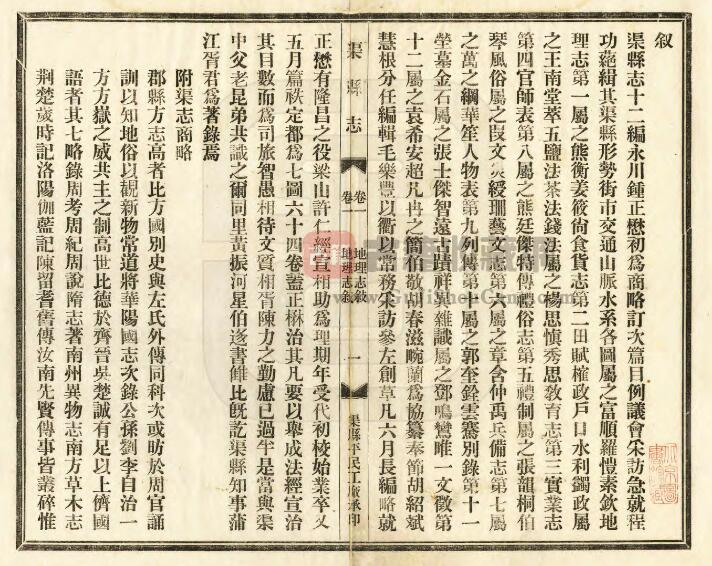 叙
渠縣志十二編永川鍾正懋初爲商略訂次篇目例議會采訪急就程
功蒞緝其渠縣形勢街市交通山脈水系各圖屬之富順羅愷素欽地
理志第一屬之熊衡姜筱尙食貨志第二田賦榷政戶口水利蠲政屬
之王南堂萃五鹽法茶法錢法屬之楊思愼秀思敎育志第三實業志
第四官師表第八屬之熊廷傑特傳禮俗志第五禮制屬之張韶桐伯
琴風俗屬之段文炎綬珊藝文志第六屬之章含仲禹兵備志第七屬
之萬之綱華笙人物表第九列傳第十屬之郭奎銓雲騫別錄第十一
塋墓金石屬之張士傑智遠古蹟祥異雜識屬之鄧鳴鸞唯一文徵第
十二屬之袁希安超凡冉之簡伯敬胡春滋畹蘭爲協纂奉節胡紹斌
慧根分任編輯毛樂豐以衢以常務采訪參左創草凡六月長編略就
正懋有隆昌之役梁山許仁經宣相助爲理期年受代初校始業卒又
五月篇袟定都爲七圖六十四卷蓋正楙治其凡要以舉成法經宣治
其目數而爲司旅智愚相待文質相胥陳力之勤慮已過半是當與渠
中父老昆弟共識之爾同里黃振河星伯逡書雔比旣訖渠縣知事蒲
江胥君爲著錄焉
附渠志商略
郡縣方志高者比方國別史與左氏外傳同科次或昉於周官誦
訓以知地俗以觀新物常道將華陽國志次錄公孫劉李自治一
方方嶽之威共主之制高世比德於齊晉吳楚誠有足以上儕國
語者其七略錄周考周紀周說隋志著南州異物志南方草木志
荆楚歲時記洛陽伽藍記陳留耆舊傳汝南先賢傳事皆叢碎惟
渠縣志
卷一
地理志敘
卷一
地理志敘
一
渠縣平民工廠承印